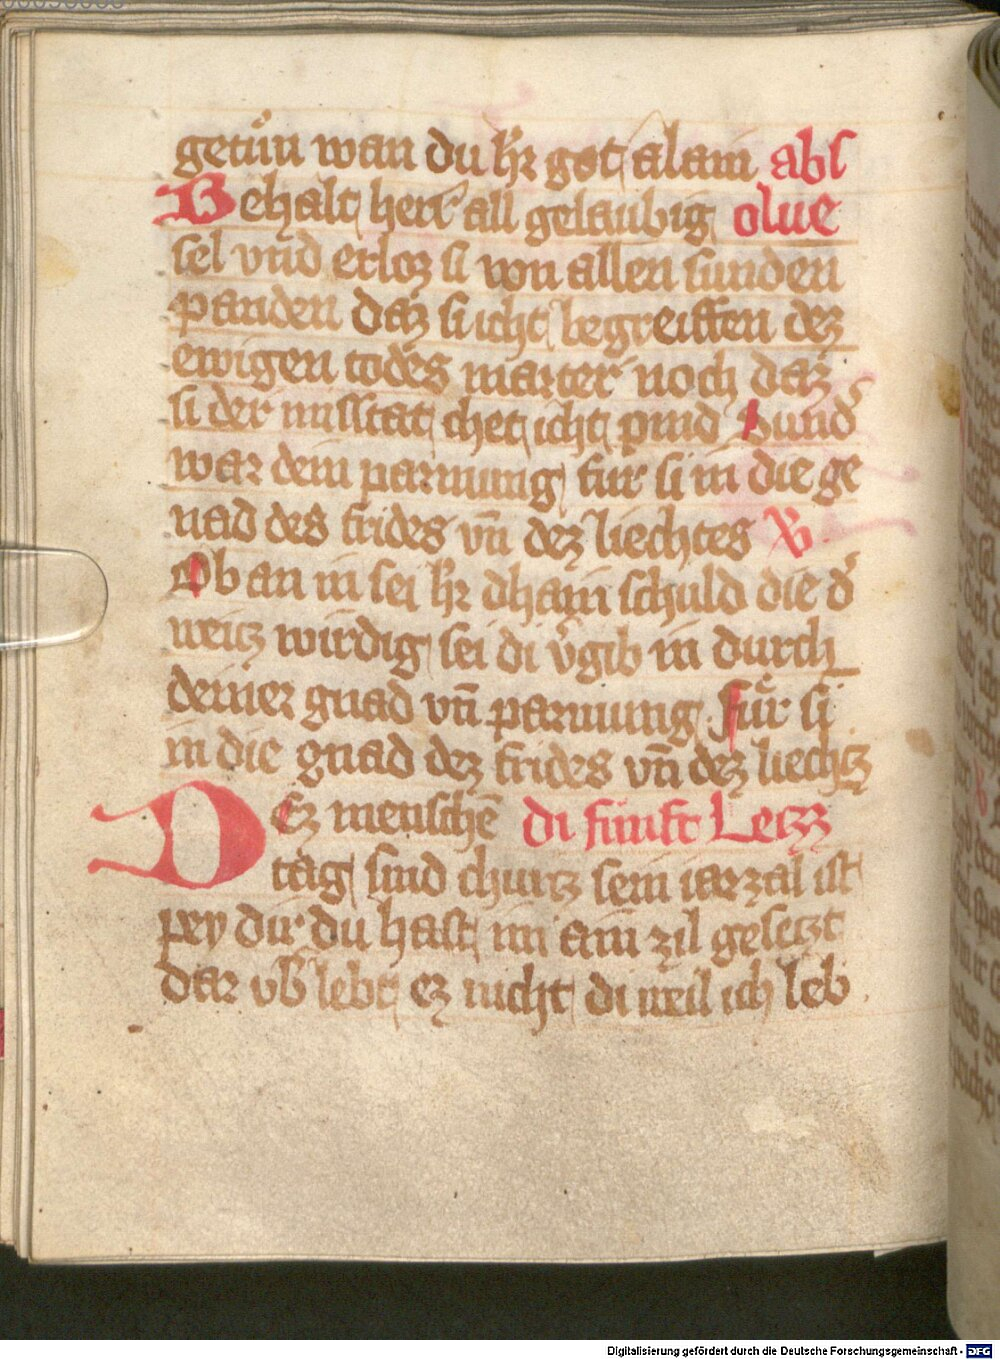 getůn wan du h̄r got alain abs
Behalt herr all gelaubig olue
sel vnd erloz si von allen sunden
panden daz si icht begreiffen dez
ewigen todes marter noch daz
si der misstat chet icht pind Sund
war dein parmung fur si in die ge
nad des frides vn̄ dez liechtes V̸
Ob an in sei h̄r dhain schuld die d̛
weitz wirdig sei di v̛gib in durch
deiner gnad vn̄ parmung für si
in die gnad dez frides vn̄ dez liechtz
Dez menschē di fünft Letzz
tag sind churtz sein iarzal ist
pey dir du hast im ain zil gesetzt
dar vb̛ lebt ez nicht di weil ich leb
Digitalisierung gefördert durch die Deutsche Forschungsgemeinschaft - DFG